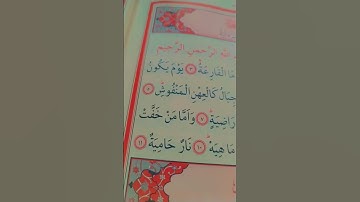 الله الرَّحْمٰنِ الرَّحِيمِ
مَا الْقَارِعَةُ ٣ يَوْمَ يَكُونُ
كَالْعِهْنِ الْمَنْفُوشِ ٥
رَاضِيَةٍ ٧ وَاَمَّا مَنْ خَفَّتْ
مَا هِيَهْ ١٠ نَارٌ حَامِيَةٌ ١١